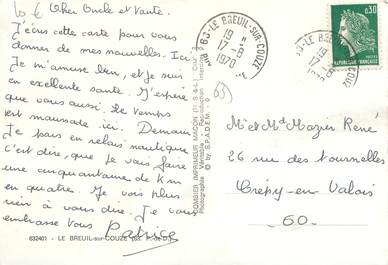 10 €
Cher Oncle et Tante.
J'écris cette carte pour vous
donner de mes nouvelles. Ici
Je m'amuse bien, et je suis
en excellente santé. J'espère
que vous aussi. Le temps
est maussade ici. Demain
Je pars en relais nautique
c'est dire, que je vais faire
une cinquantaine de km
en quatre. Je vois plus
rien à vous dire. Je vous
embrasse Vous Patrice
632401 - LE BREUIL-sur-COUZE (63. P.-de-D.)
COMBIER IMPRIMEUR MACON
Photographie Véritable - Reproduction Interdite
© by S.P.A.D.E.M.
63
63-LE BREUIL-SUR-COUZE
19 H
17-8
1970
63-LE BREUIL-SUR-COUZE
19 H
17-8
1970
0,30
REPUBLIQUE FRANCAISE
Mr et Md Mazier René
26 rue des tournelles
Crépy-en Valois
60